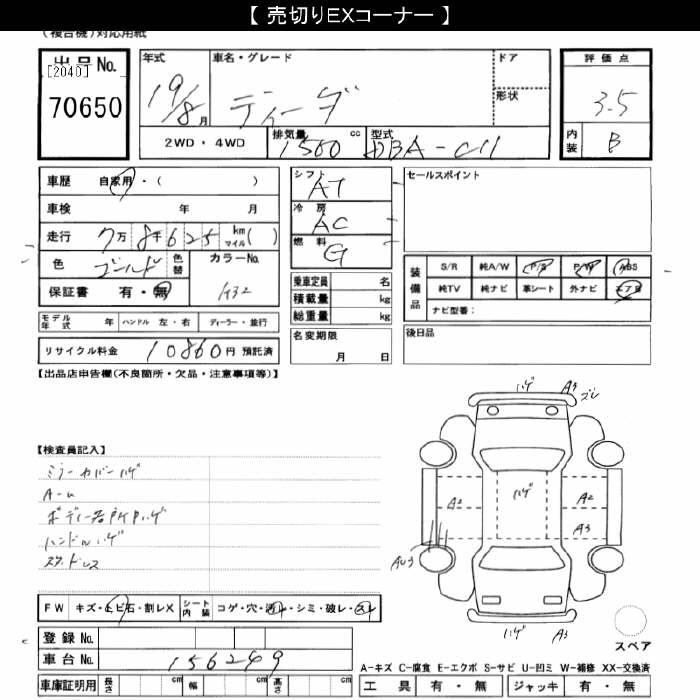 【 売切りEXコーナー 】
(複合機)対応用紙
出品No. [2040] 70650
年式 19/8月 車名・グレード ティーダ ドア 形状
評価点 3.5
内装 B
2WD・4WD 排気量 1500 cc 型式 DBA-C11
車歴 自家用・( )
車検 年 月
走行 7万8千625 km マイル( )
色 ゴールド 色替 カラーNo.
保証書 有・無
シフト AT
冷房 AC
燃料 G
乗車定員 名
積載量 kg
総重量 kg
名変期限 月 日
セールスポイント
装備品 S/R 純A/W P/S P/W ABS
純TV 純ナビ 革シート 外ナビ エアB
ナビ型番:
後日品
モデル年式 年 ハンドル 左・右 ディーラー・並行
リサイクル料金 10860円 預託済
【出品店申告欄(不良箇所・欠品・注意事項等)】
【検査員記入】
ミラーカバーハゲ
A-u
ボディー
ハンドルハゲ
スタッドレス
ハゲ A3 ズレ
A2 ハゲ A2
A3
AU3
ハゲ A3
スペア
FW キズ・ヒビ石・割レX シート内装 コゲ・穴・汚レ・シミ・破レ・スレ
登録No.
車台No. 156249
車庫証明用 長さ cm 幅 cm 高さ cm
A-キズ C-腐食 E-エクボ S-サビ U-凹ミ W-補修 XX-交換済
工具 有・無 ジャッキ 有・無